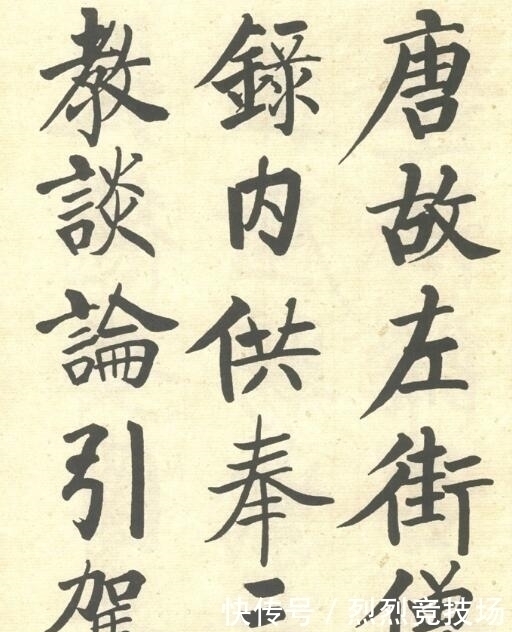 唐故左街僧
錄内供奉三
教談論引駕
快传号 / 烈烈竞技场